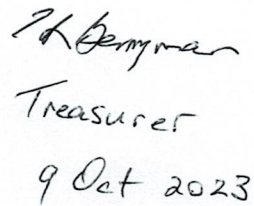 Berryman
Treasurer
9 Oct 2023